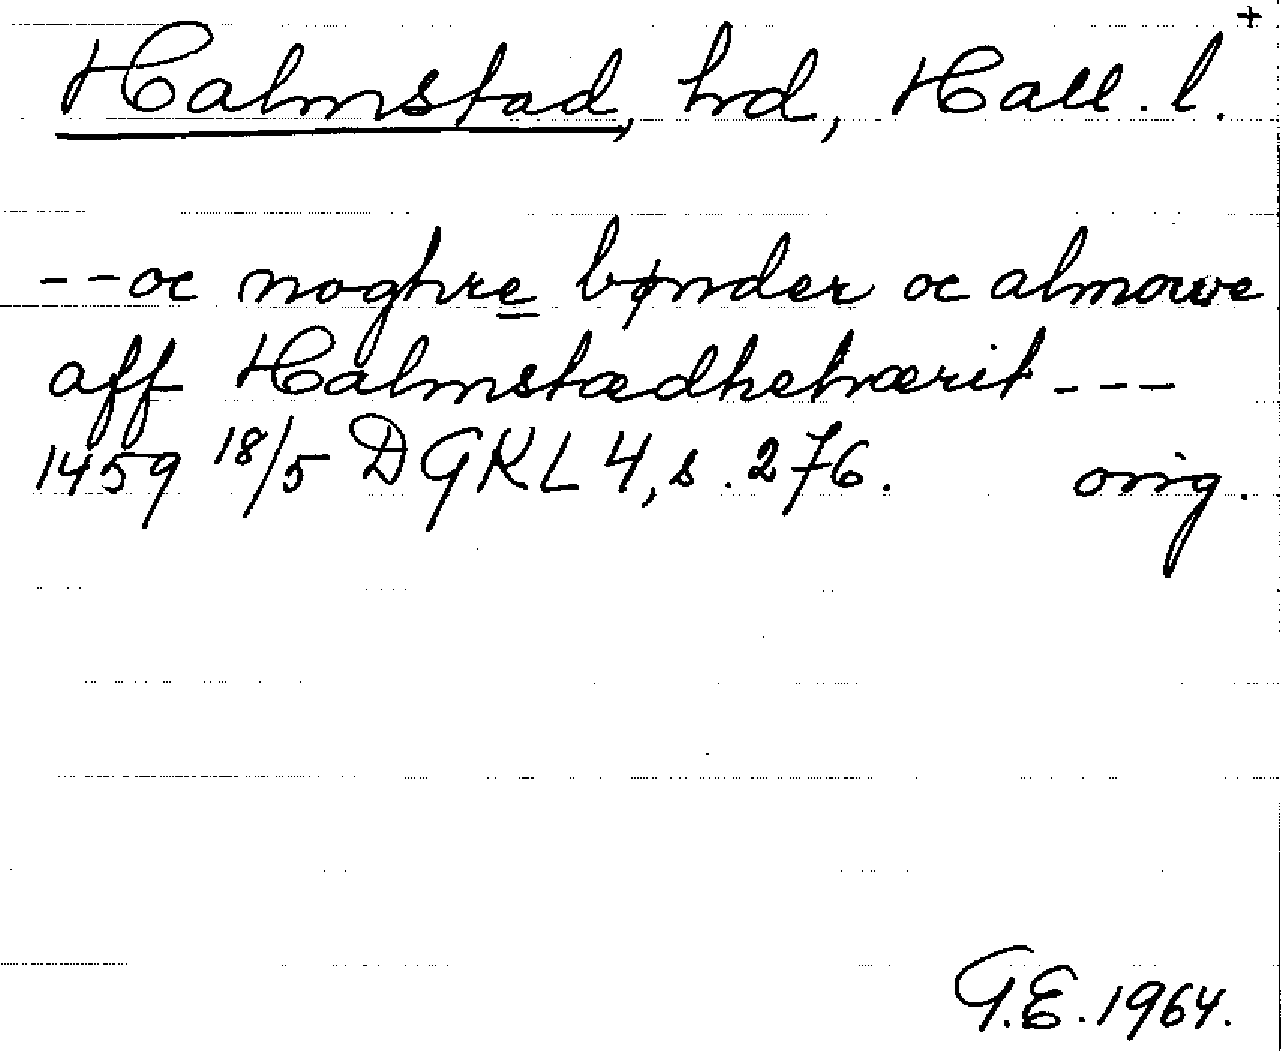 Halmstad, hd, Hall. l. +
--oc noghre bønder oc almowe
aff Halmstædhehærit ---
1459 18/5 DGKL 4, s. 276. orig.
G.E. 1964.